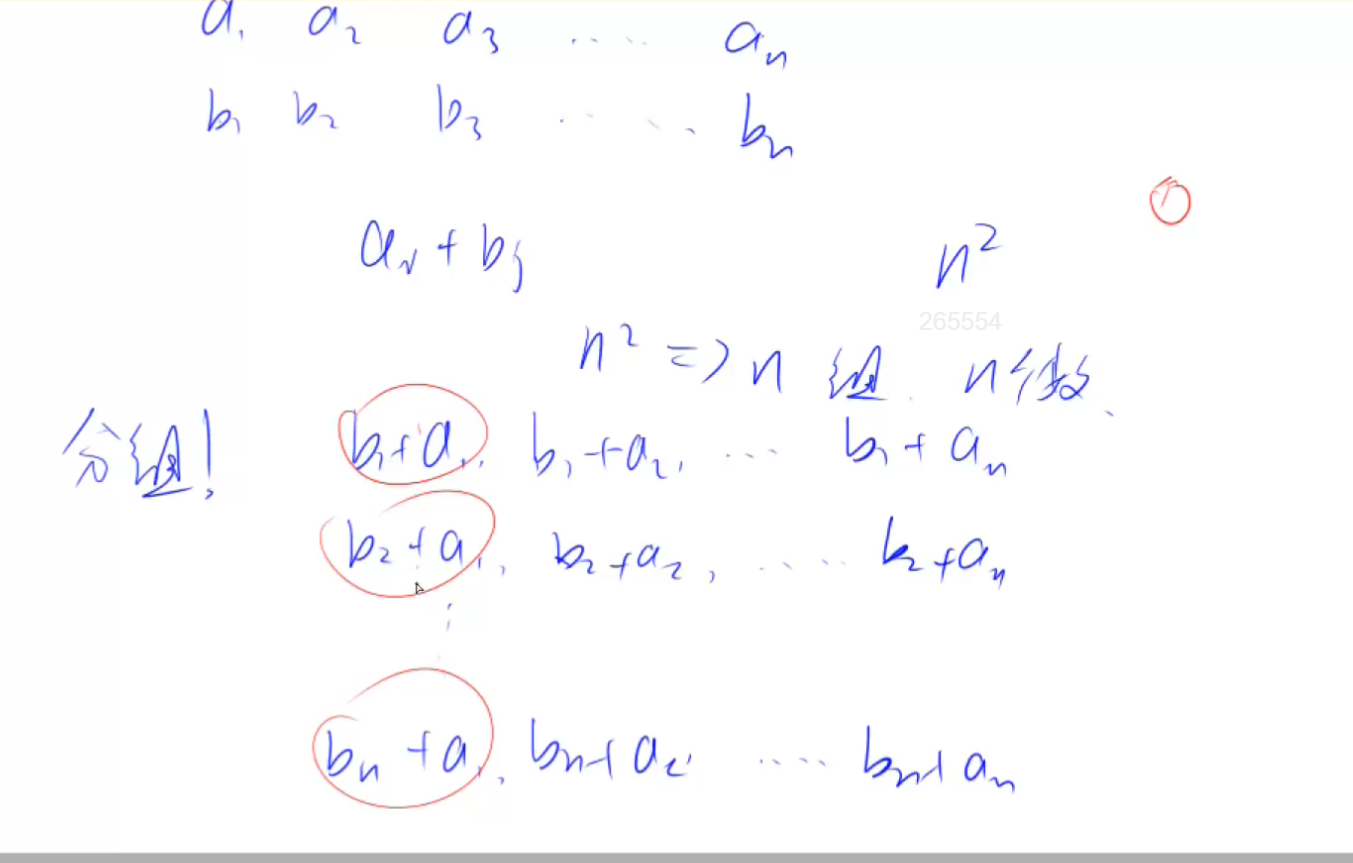 a₁ a₂ a₃ ..... aₙ
b₁ b₂ b₃ ..... bₙ
aᵢ + bⱼ n²
265554
n² => n 组. n个数、
分组! b₁+a₁, b₁+a₂, ... b₁+aₙ
b₂+a₁, b₂+a₂, .... b₂+aₙ
⋮
bₙ+a₁, bₙ+a₂, .... bₙ+aₙ